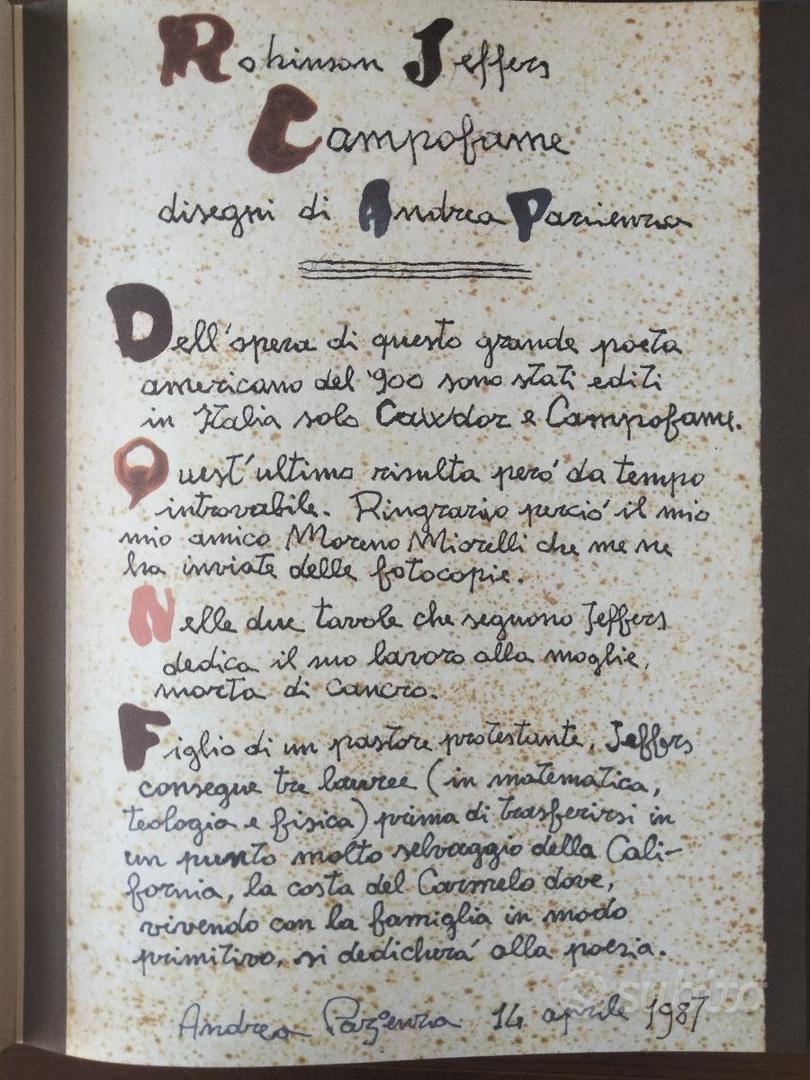 Robinson Jeffers
Campofame
disegni di Andrea Pazienza
Dell'opera di questo grande poeta
americano del '900 sono stati editi
in Italia solo Cawdor e Campofame.
Quest'ultimo risulta però da tempo
introvabile. Ringrazio perciò il mio
mio amico Moreno Miorelli che me ne
ha inviate delle fotocopie.
Nelle due tavole che seguono Jeffers
dedica il suo lavoro alla moglie,
morta di cancro.
Figlio di un pastore protestante, Jeffers
consegue tre lauree (in matematica,
teologia e fisica) prima di trasferirsi in
un punto molto selvaggio della Cali-
fornia, la costa del Carmelo dove,
vivendo con la famiglia in modo
primitivo, si dedicherà alla poesia.
subito
Andrea Pazienza 14 aprile 1987